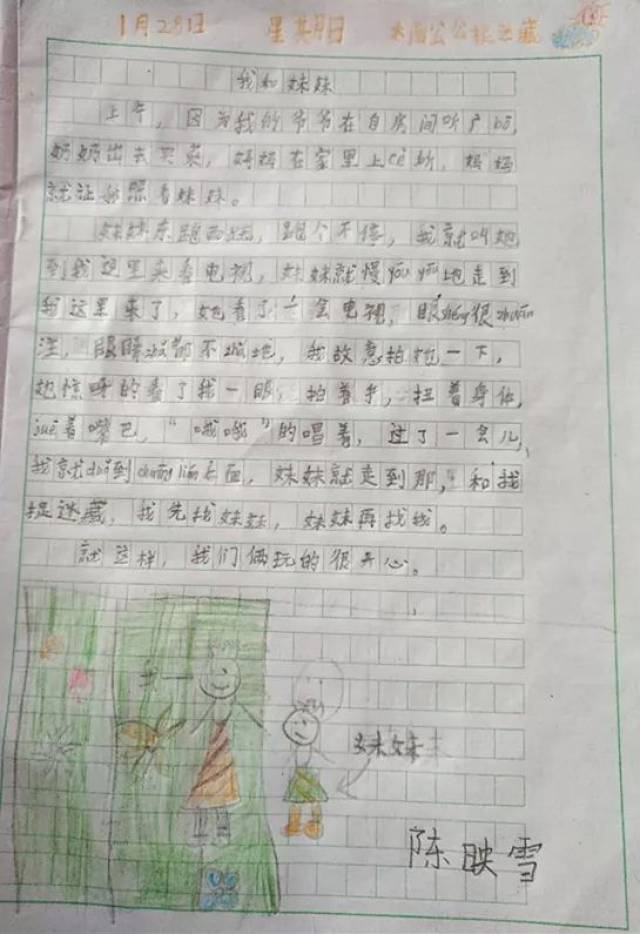 1月28日 星期日 太阳公公捉迷藏
我和妹妹
上午，因为我的爷爷在自房间听广bō，
奶奶出去买菜，妈妈在家里上cè所，妈妈
就让我照看妹妹。
妹妹东跑西跑，跑个不停，我就叫她
到我这里来看电视，妹妹就慢悠悠地走到
我这里来了，她看了一会电视，眼很
眼睛都不地，我故意拍她一下，
她惊呀的看了我一眼，拍着手，扭着身体，
juē着嘴巴，“哦哦”的唱着，过了一会儿，
我就duǒ到chuāng lián后面，妹妹就走到那，和我
捉迷藏，我先找妹妹，妹妹再找我。
就这样，我们俩玩的很开心。
我
妹妹
陈映雪